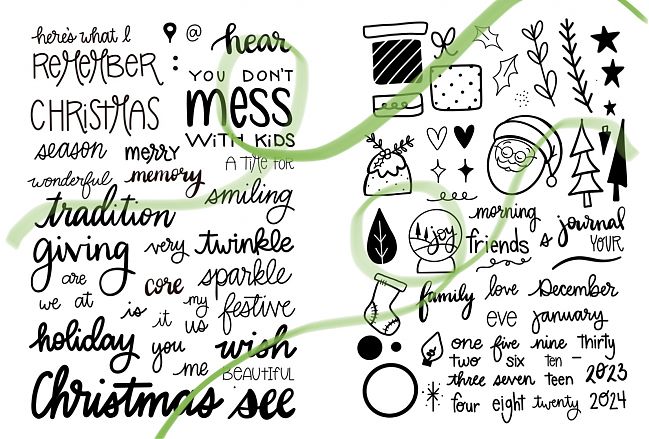 here's what I @ hear
REMEMBER :
YOU DON'T
CHRISTMAS mess
WITH KIDS
season merry A TIME FOR
wonderful memory smiling
tradition
giving very twinkle
are core sparkle
we at is it my us festive
holiday you wish
me BEAUTIFUL
Christmas see
joy
morning
friends s journal
YOUR
family love December
eve january
one five nine thirty
two six ten –
three seven teen 2023
four eight twenty 2024